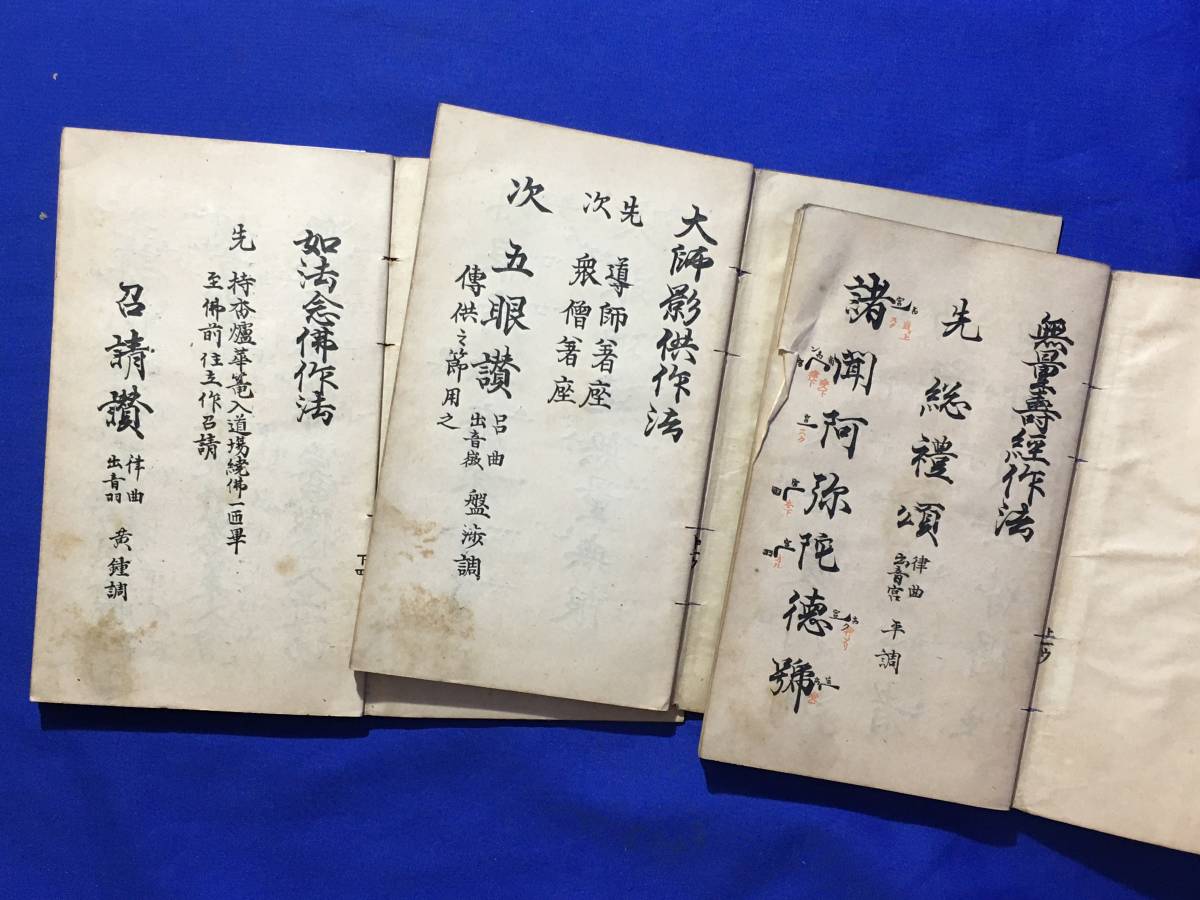 無量壽經作法
先 総禮頌 律曲 出音宮 平調
諸聞阿弥陀德號
上一ウ
大師影供作法
先 導師著座
次 衆僧著座
次 五眼讃 呂曲 出音徴 盤渉調
傳供之節用之
如法念佛作法
先 持香爐華篭入道場繞佛一匝畢
至佛前住立作召請
召請讃 律曲 出音羽 黄鐘調
下四